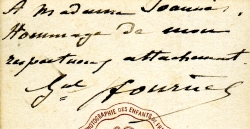 A Madame Joannis,
Hommage de mon
respectueux attachement.
Gal Fournier
PHOTOGRAPHIE DES ENFANTS